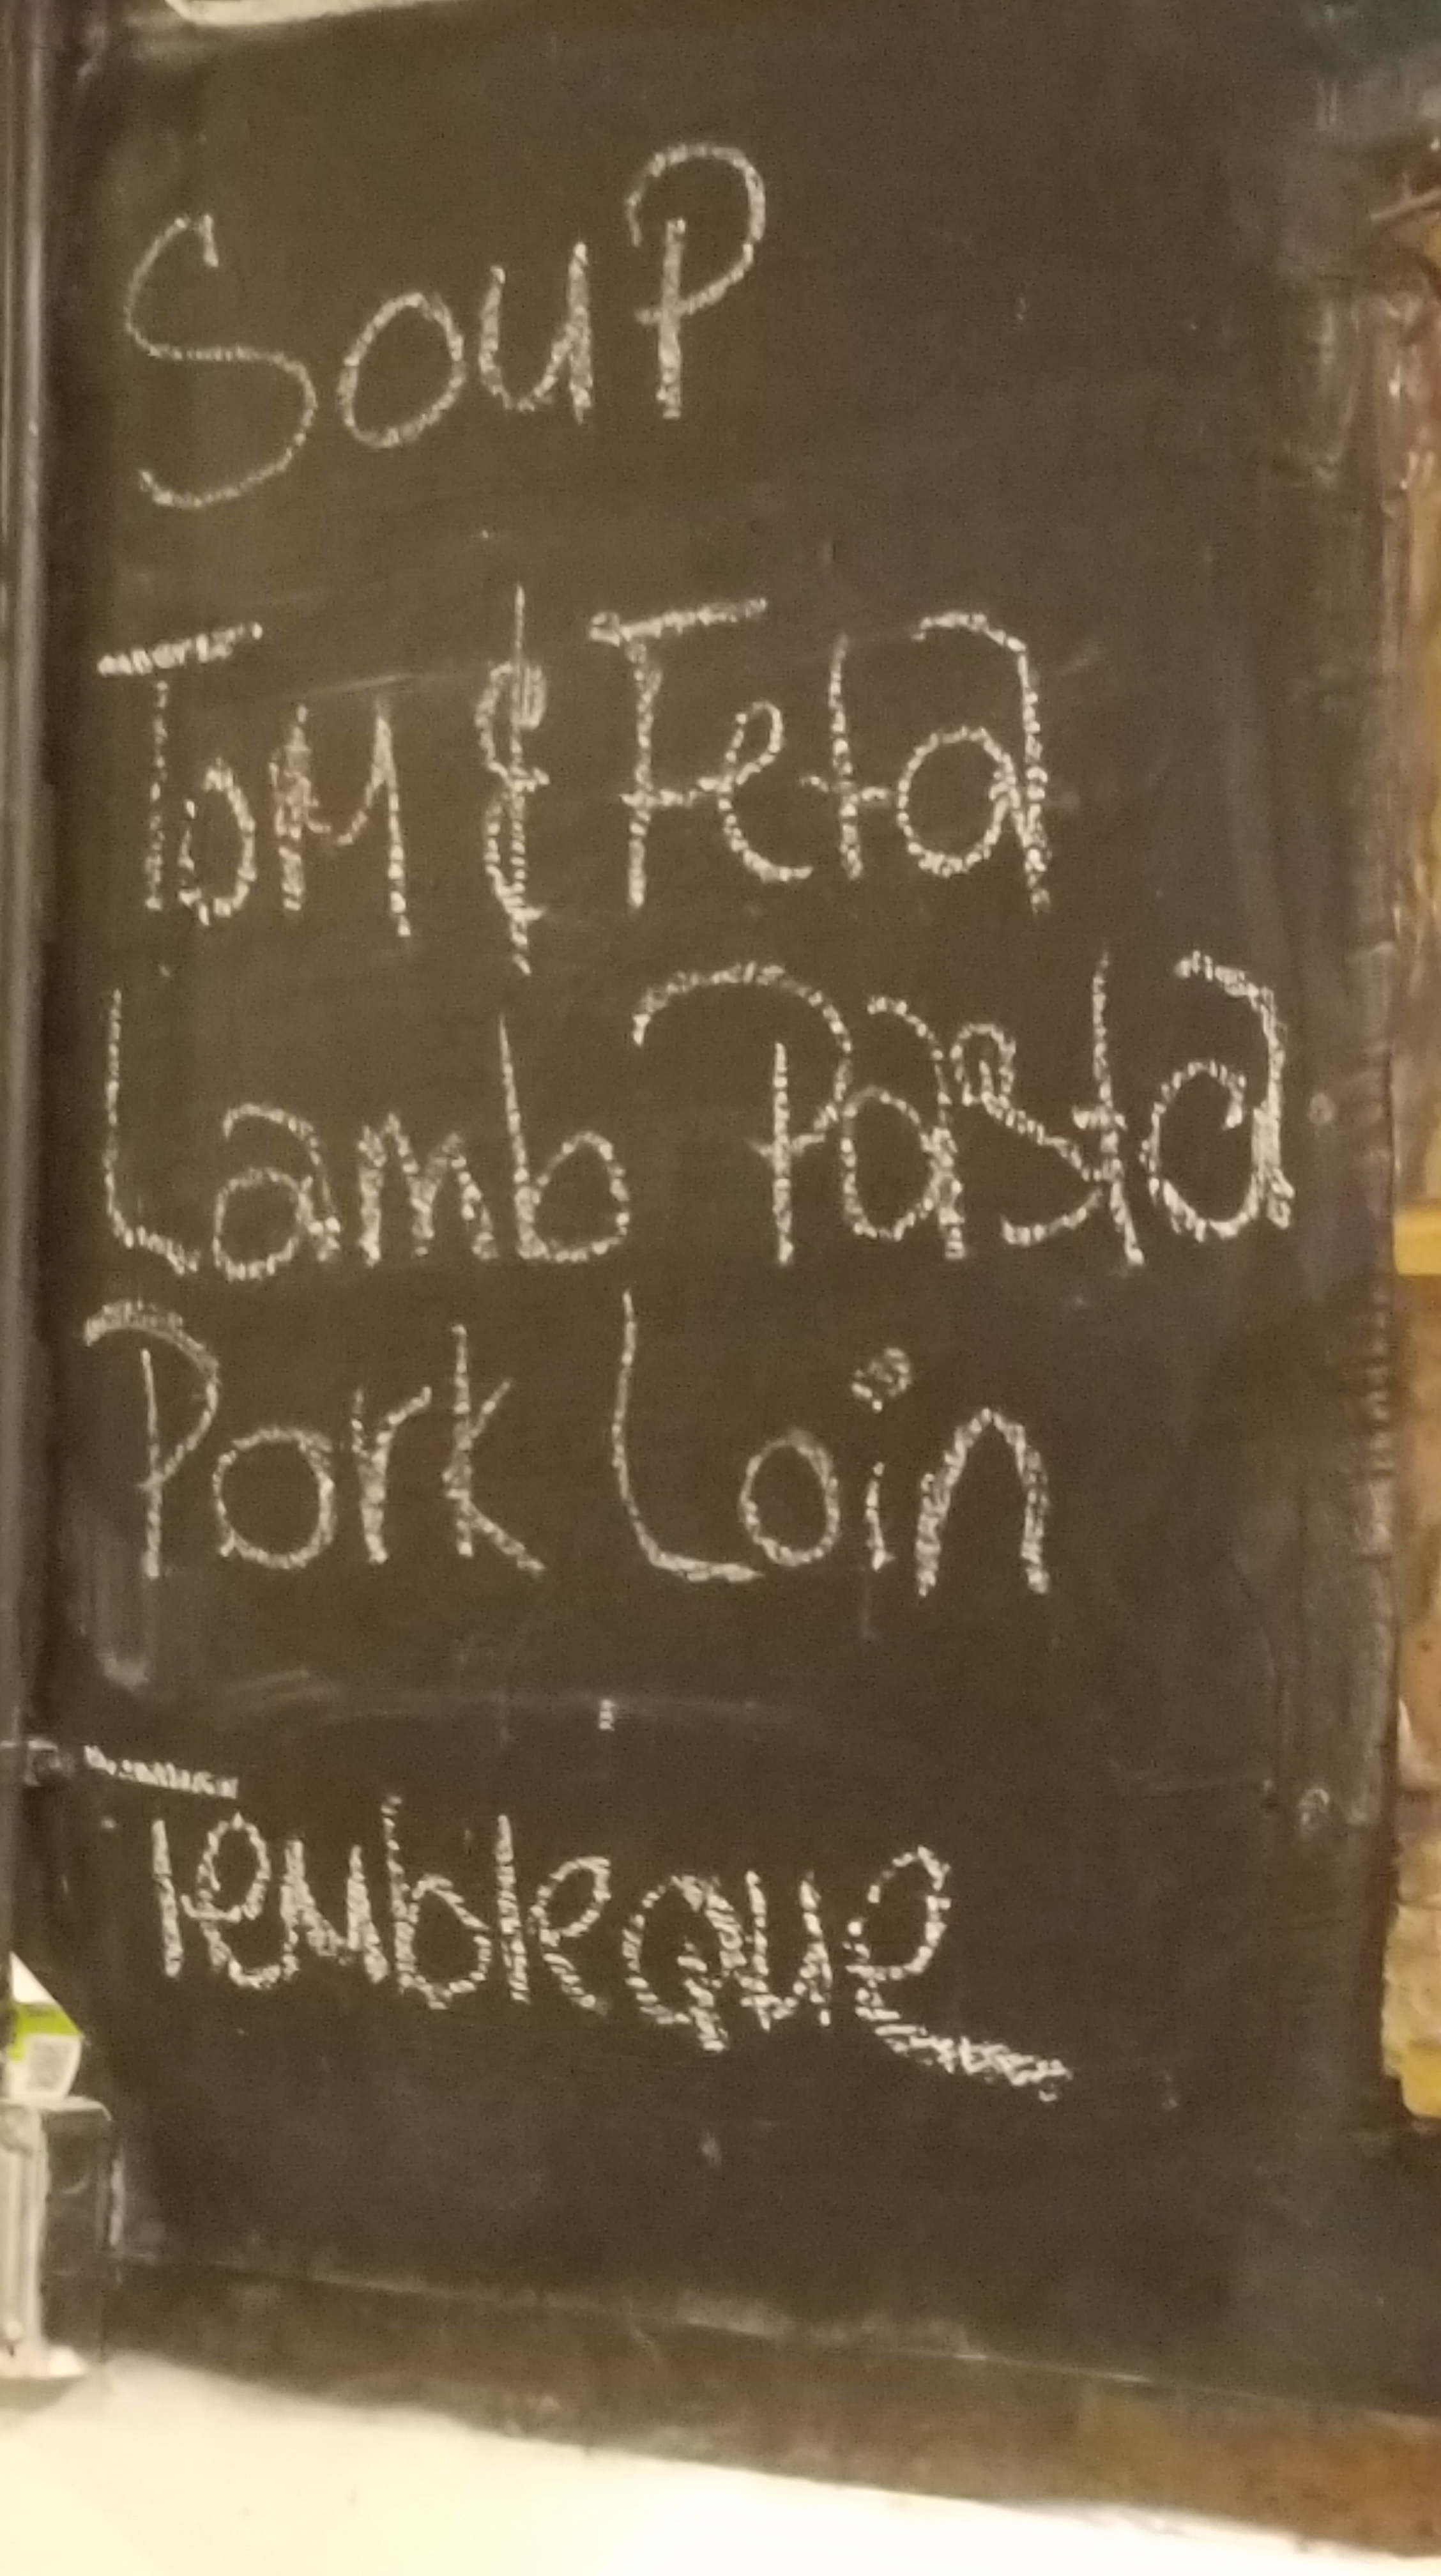 Soup
Tom & Feta
Lamb Pasta
Pork Loin
Tembleque